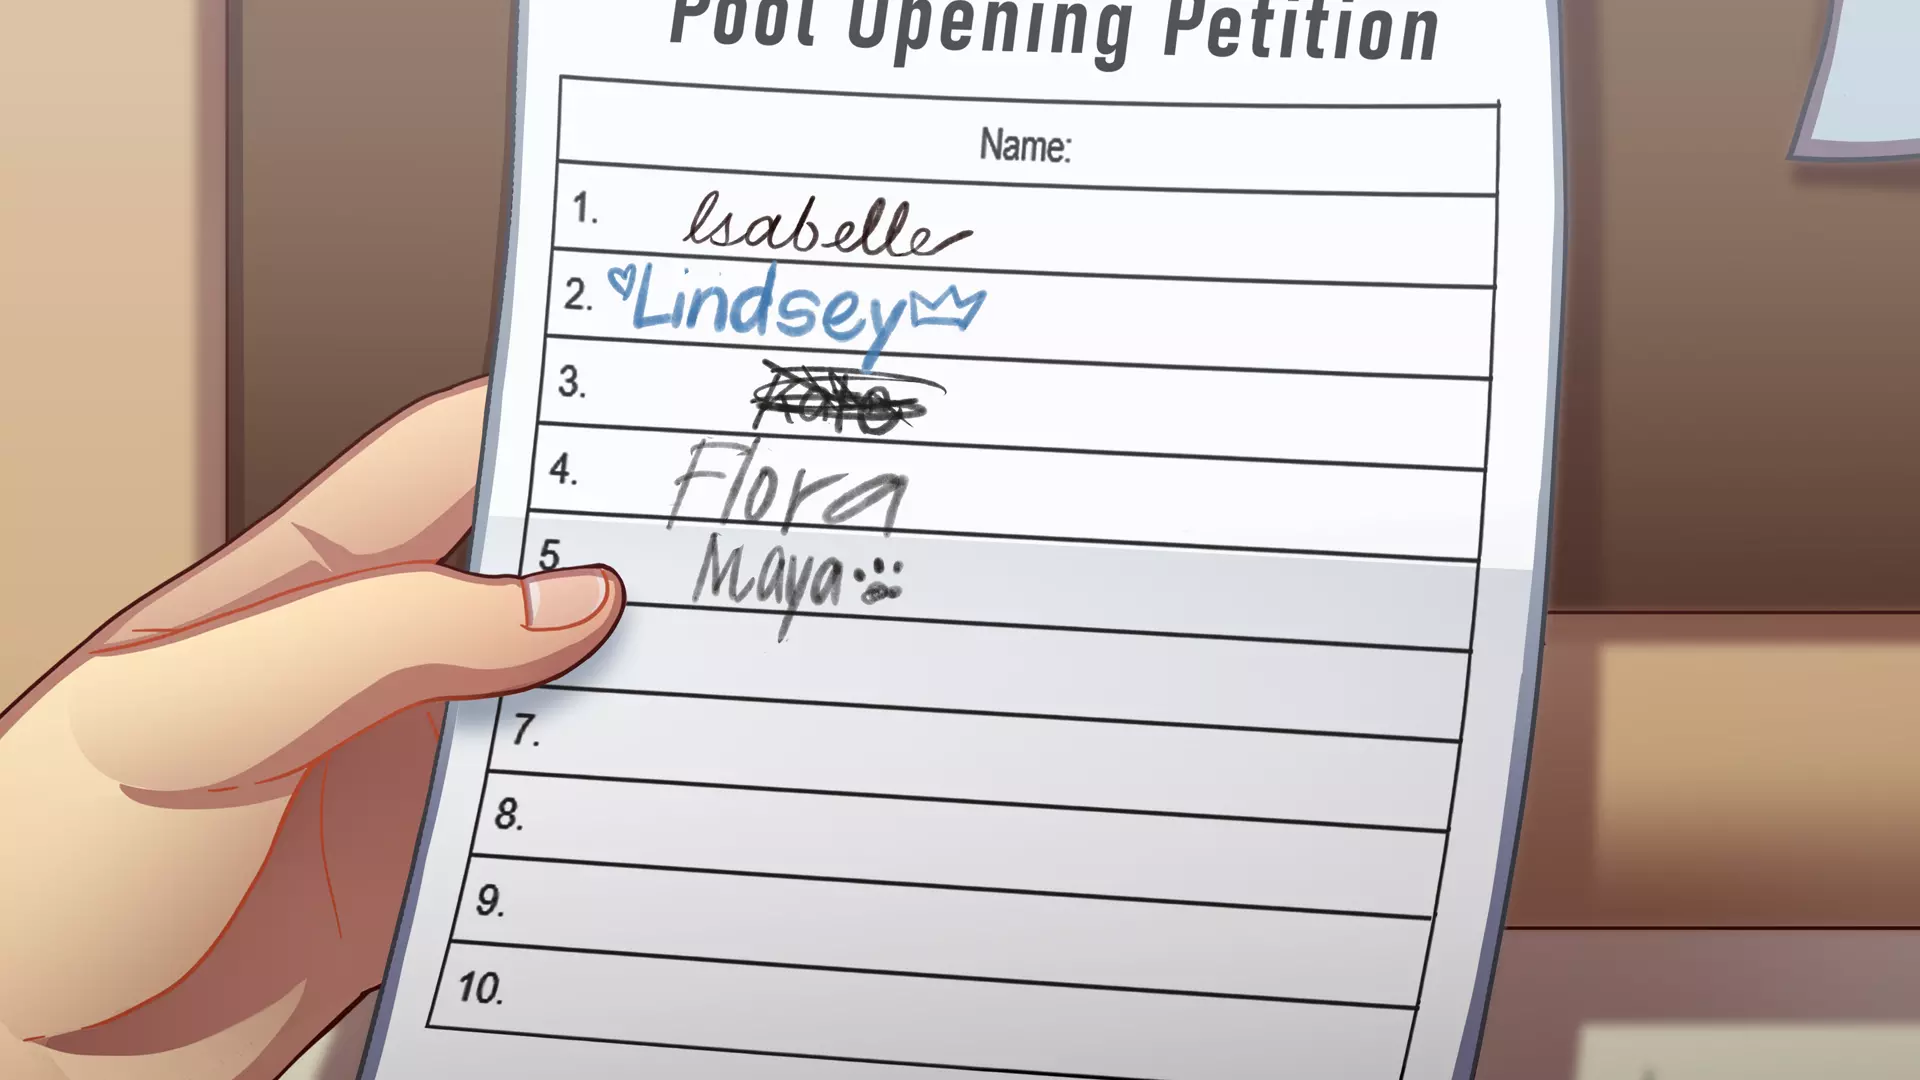 Pool Opening Petition
Name:
1. Isabelle
2. Lindsey
3.
4. Flora
5 Maya
7.
8.
9.
10.